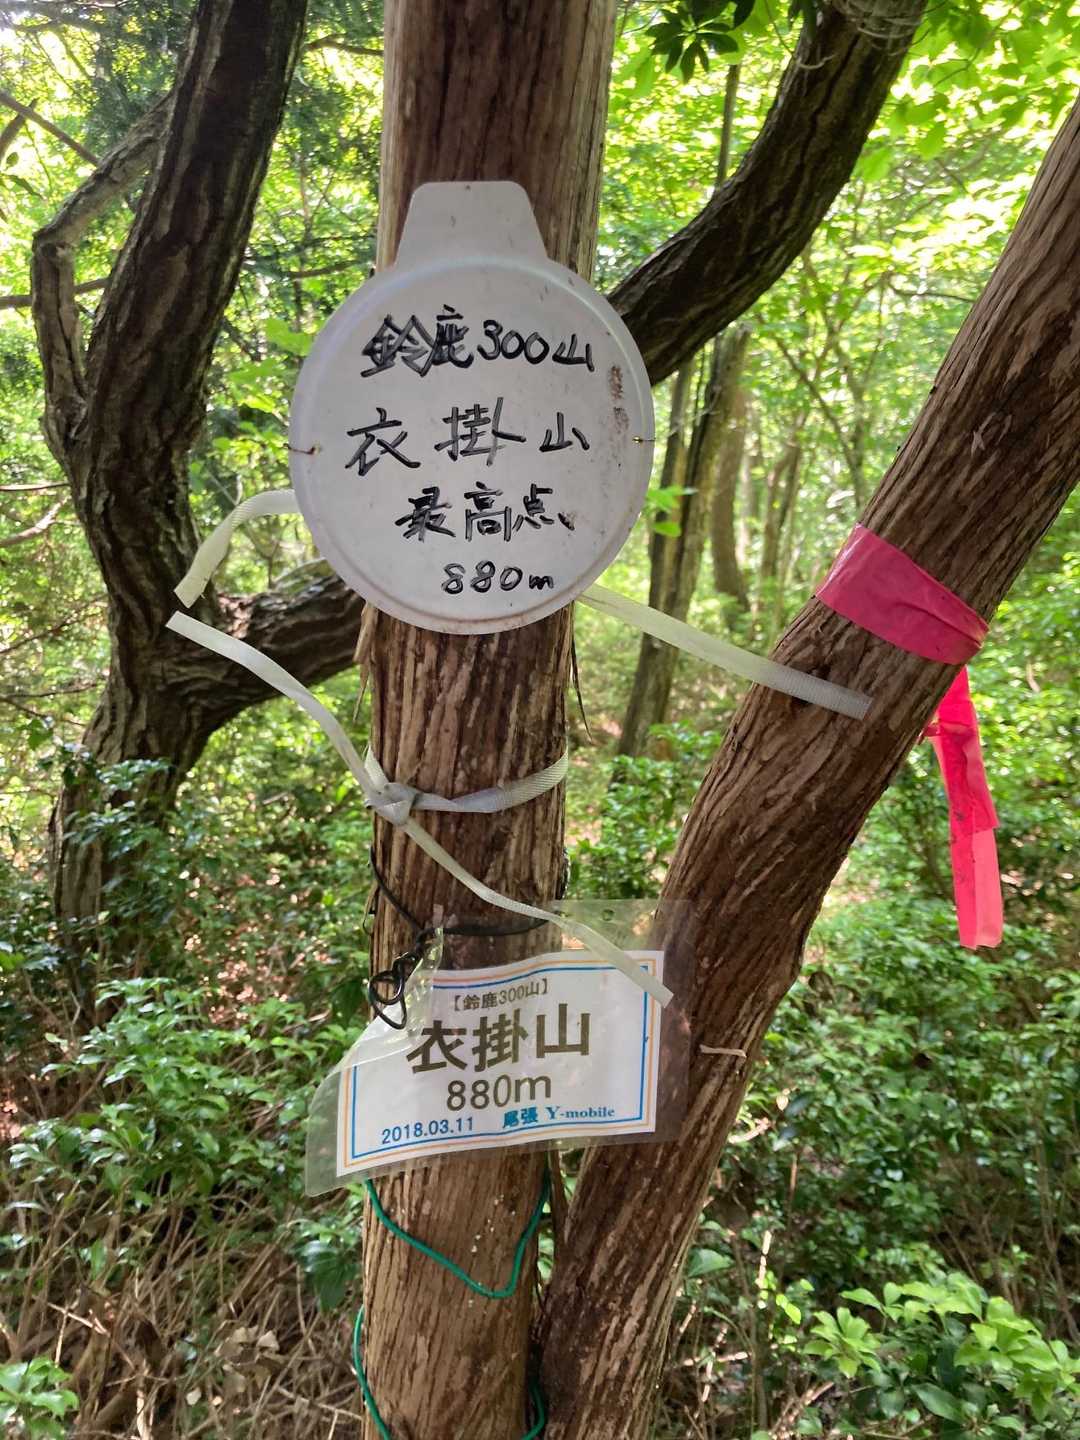 鈴鹿300山
衣掛山
最高点
880m
【鈴鹿300山】
衣掛山
880m
2018.03.11 尾張 Y-mobile